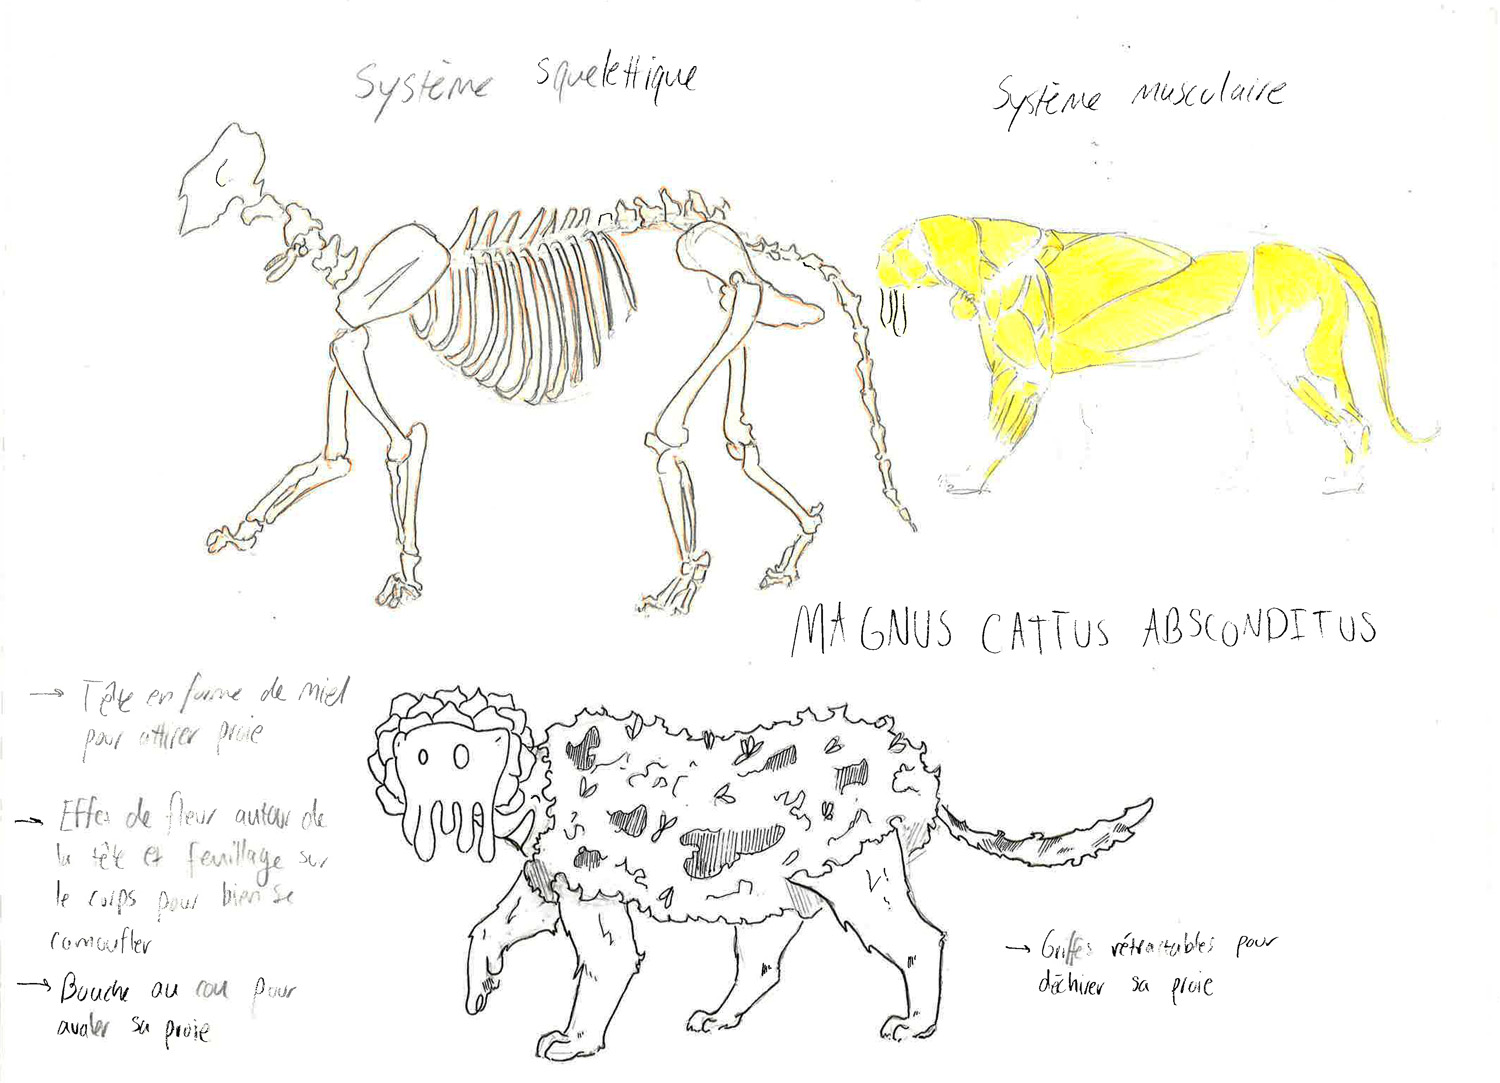 Système squelettique
Système musculaire
MAGNUS CATTUS ABSCONDITUS
→ Tête en forme de miel
pour attirer proie
→ Effet de fleur autour de
la tête et feuillage sur
le corps pour bien se
camoufler
→ Bouche au cou pour
avaler sa proie
→ Griffes rétractables pour
déchirer sa proie